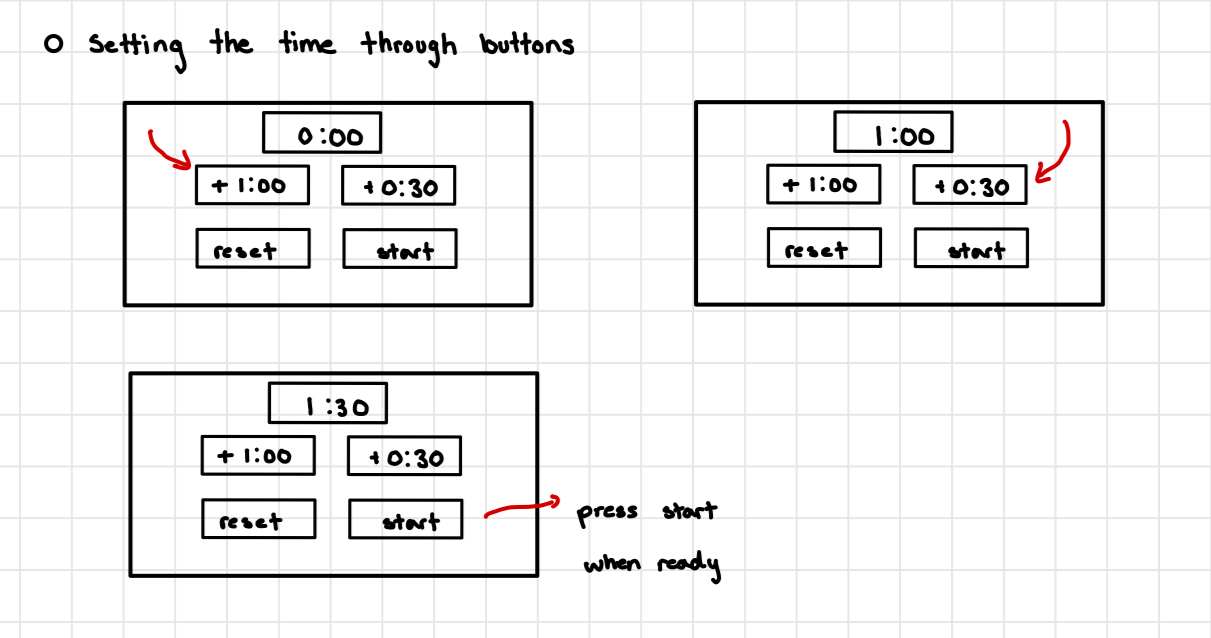 o Setting the time through buttons
0:00
+ 1:00 + 0:30
reset start
1:00
+ 1:00 + 0:30
reset start
1:30
+ 1:00 + 0:30
reset start
press start
when ready